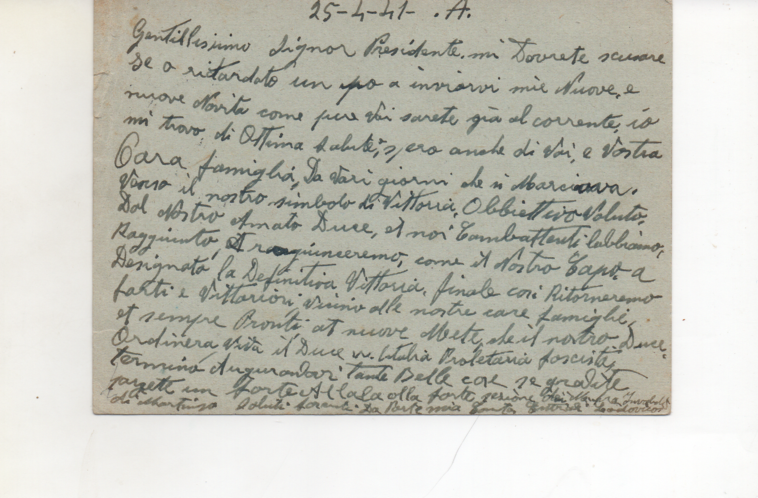 25-4-41- .A.
Gentillissimo Signor Presidente. mi Dovrete scusare
se o ritardato un po a inviarvi mie Nuove, e
nuove Novità come pure Voi sarete già al corrente, io
mi trovo, di Ottima Salute, spero anche di Voi, e Vostra
Cara famiglia, Da vari giorni che si Marciava.
Verso il nostro, simbolo di Vittoria, Obbiettivo Voluto,
Dal Nostro Amato Duce, et noi Combattenti labbiamo,
Raggiunto, et raggiunceremo, come il Nostro Capo a
Designato la Definitiva Vittoria, finale cosi Ritorneremo
forti e Vittoriosi, vicino alle nostre care famiglie,
et sempre Pronti, at nuove Mete, che il nostro Duce.
Ordinera, Viva il Duce W. Litalia Proletaria fascista,
termino, Augurandovi tante Belle cose, se gradite
un forte Allala alla forte, sezione
di Martino Saluti Da Parte mia